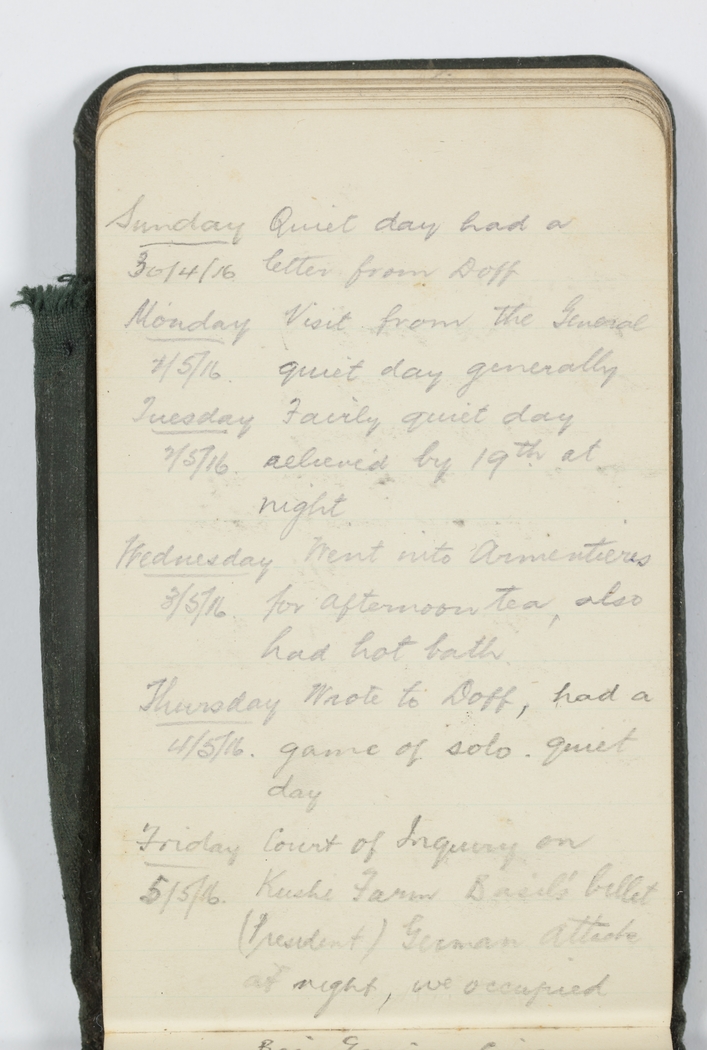 Sunday Quiet day had a
30/4/16 letter from Doff
Monday Visit from the General
1/5/16. quiet day generally
Tuesday Fairly quiet day
2/5/16. relieved by 19th at
night
Wednesday Went into Armentieres
3/5/16. for afternoon tea, also
had hot bath.
Thursday Wrote to Doff, had a
4/5/16. game of solo. quiet
day
Friday Court of Inquiry on
5/5/16. Farm Basil's billet
(President) German attack
at night, we occupied